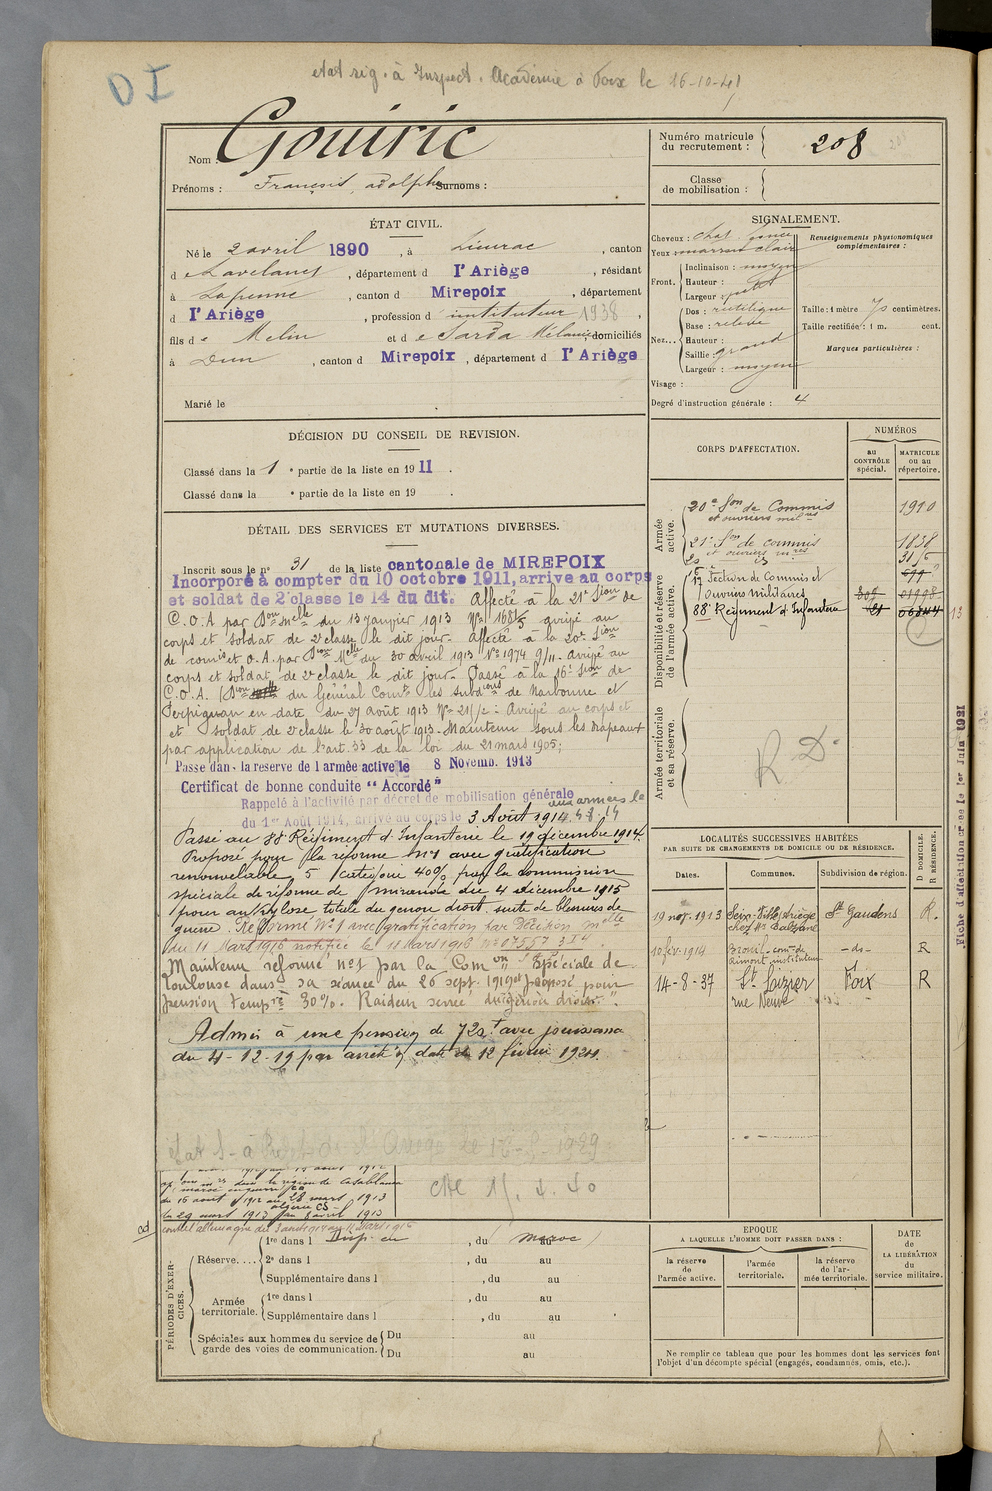 DI
etat sig. à Inspect. Académie à Foix le 16-10-41
Nom : Gouiric
Prénoms : François, adolphe Surnoms :
Numéro matricule du recrutement : 208
Classe de mobilisation :
ÉTAT CIVIL.
Né le 2 avril 1890, à Lieurac, canton
d e Lavelanet, département d l'Ariège, résidant
à Lapenne, canton d Mirepoix, département
d l'Ariège, profession d' instituteur 1938,
fils d e Melin et d e Sarda Mélanie, domiciliés
à Dun, canton d Mirepoix, département d l'Ariège
Marié le
SIGNALEMENT.
Cheveux : chat. foncé
Yeux : marron clair
Front. Inclinaison : moyen
Hauteur :
Largeur : petit
Nez... Dos : rectiligne
Base : relevée
Hauteur :
Saillie : grand
Largeur : moyen
Visage :
Degré d'instruction générale : 4
Renseignements physionomiques complémentaires :
Taille : 1 mètre 70 centimètres.
Taille rectifiée : 1 m. cent.
Marques particulières :
DÉCISION DU CONSEIL DE REVISION.
Classé dans la 1 e partie de la liste en 19 11.
Classé dans la e partie de la liste en 19 .
DÉTAIL DES SERVICES ET MUTATIONS DIVERSES.
Inscrit sous le n° 31 de la liste cantonale de MIREPOIX
Incorporé à compter du 10 octobre 1911, arrive au corps
et soldat de 2e classe le 14 du dit. Affecté à la 21e Sion de
C.O.A par Don Melle du 13 janvier 1913 arrivé au
corps et soldat de 2e classe le dit jour. Affecté à la 20e Sion
de comis et O.A. par Don Melle du 30 avril 1913 N° 1974 9/11. Arrivé au
corps et soldat de 2e classe le dit jour. Passé à la 16e Sion de
C.O.A. (Don du Général Comt les subdons de Narbonne et
Perpignan en date du 27 août 1913 Arrivé au corps et
et soldat de 2e classe le 30 août 1913. Maintenu sous les drapeaux
par application de l'art. 33 de la loi du 21 mars 1905;
Passé dans la reserve de l'armée active le 8 Novemb. 1913
Certificat de bonne conduite "Accordé"
Rappelé à l'activité par décret de mobilisation générale
aux armées le
du 1er Août 1914, arrivé au corps le 3 Août 1914. 4.8.14
Passé au 88 Régiment d'Infanterie le 19 décembre 1914.
Proposé pour la réforme n°1 avec gratification
renouvelable, 5 catégorie 40% par la commission
spéciale de réforme de Mirande du 4 décembre 1915
pour ankylose totale du genou droit, suite de blessures de
guerre. Réformé N°1 avec gratification par Décision melle
du 11 Mars 1916 notifiée le 11 Mars 1916
Maintenu réformé n°1 par la Comon Spéciale de
Toulouse dans sa séance du 26 sept. 1919 et proposé pour
pension tempre 30%. Raideur serrée du genou droit.
Admis à une pension de 720f avec jouissance
du 4-12-19 par arrêté en date du 12 février 1924.
du 16 août 1912 au 28 mars 1913
algérie CS
du 29 mars 1913 au 3 avril 1913
contre l'allemagne du 3 août 1914 au 11 Mars 1916
15. 4. 40
CORPS D'AFFECTATION.
NUMÉROS
au CONTRÔLE spécial.
MATRICULE ou au répertoire.
Armée active.
20e Son de Commis et ouvriers milres 1910
21e Son de commis et ouvriers mres 1838
Disponibilité et réserve de l'armée active.
17 Section de Commis et
Ouvriers Militaires
88e Régiment d'Infanterie
13
Armée territoriale et sa réserve.
R. D.
Fiche d'affectation créée le 1er Juin 1921
LOCALITÉS SUCCESSIVES HABITÉES
PAR SUITE DE CHANGEMENTS DE DOMICILE OU DE RÉSIDENCE.
Dates. Communes. Subdivision de région. D DOMICILE. R RÉSIDENCE.
19 nov. 1913 Seix St Gaudens R.
10 fév. 1914 comne de Rimont instituteur - do - R
14-8-37 St Lizier rue Neuve Foix R
PÉRIODES D'EXERCICES.
Réserve.... 1re dans l Disp. en , du Maroc au
2e dans l , du au
Supplémentaire dans l , du au
Armée territoriale. 1re dans l , du au
Supplémentaire dans l , du au
Spéciales aux hommes du service de garde des voies de communication. Du au
Du au
EPOQUE
A LAQUELLE L'HOMME DOIT PASSER DANS :
la réserve de l'armée active.
l'armée territoriale.
la réserve de l'armée territoriale.
DATE de LA LIBÉRATION du service militaire.
Ne remplir ce tableau que pour les hommes dont les services font
l'objet d'un décompte spécial (engagés, condamnés, omis, etc.).